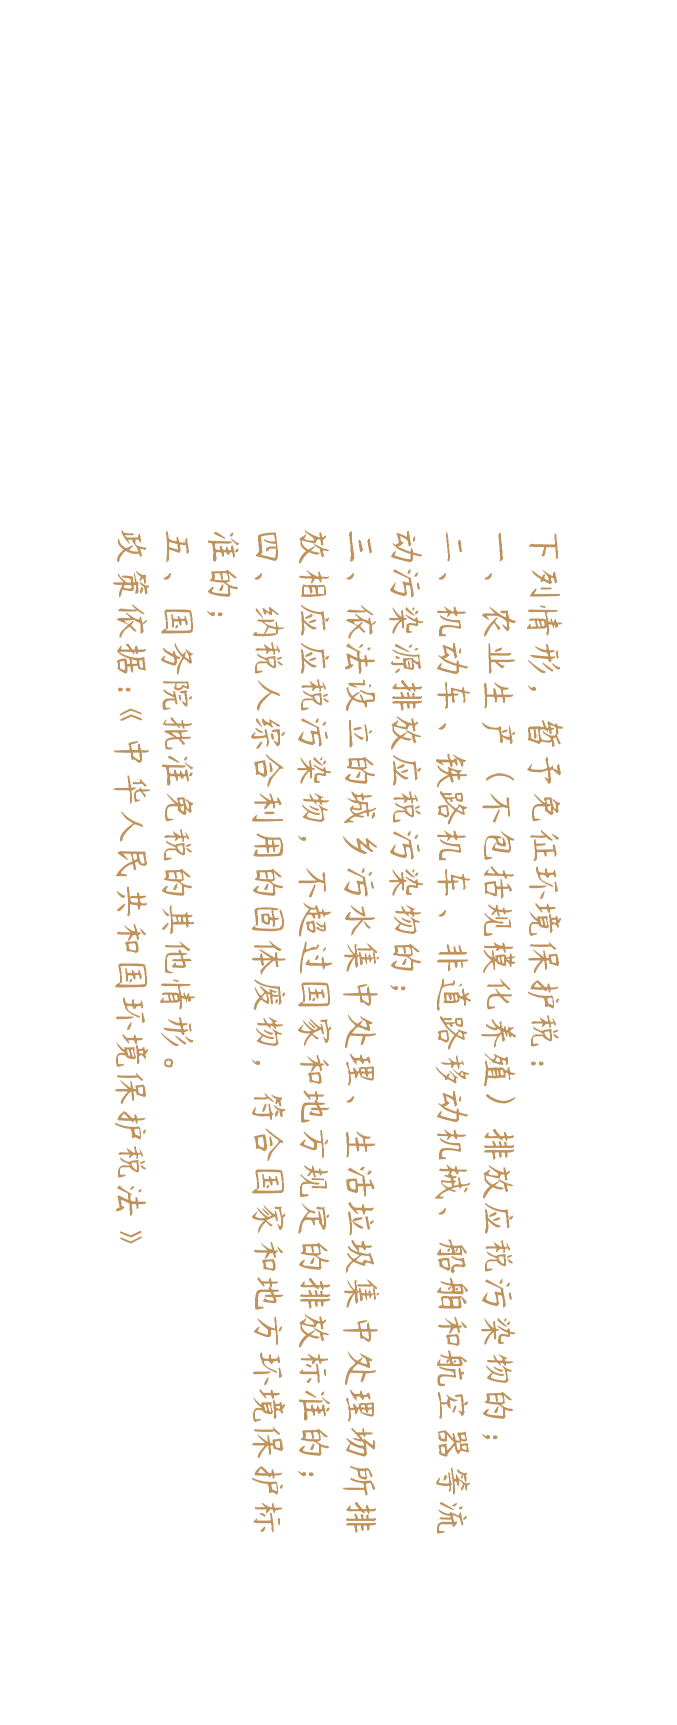 下列情形，暂予免征环境保护税：
一、农业生产（不包括规模化养殖）排放应税污染物的；
二、机动车、铁路机车、非道路移动机械、船舶和航空器等流
动污染源排放应税污染物的；
三、依法设立的城乡污水集中处理、生活垃圾集中处理场所排
放相应应税污染物，不超过国家和地方规定的排放标准的；
四、纳税人综合利用的固体废物，符合国家和地方环境保护标
准的；
五、国务院批准免税的其他情形。
政策依据：《中华人民共和国环境保护税法》